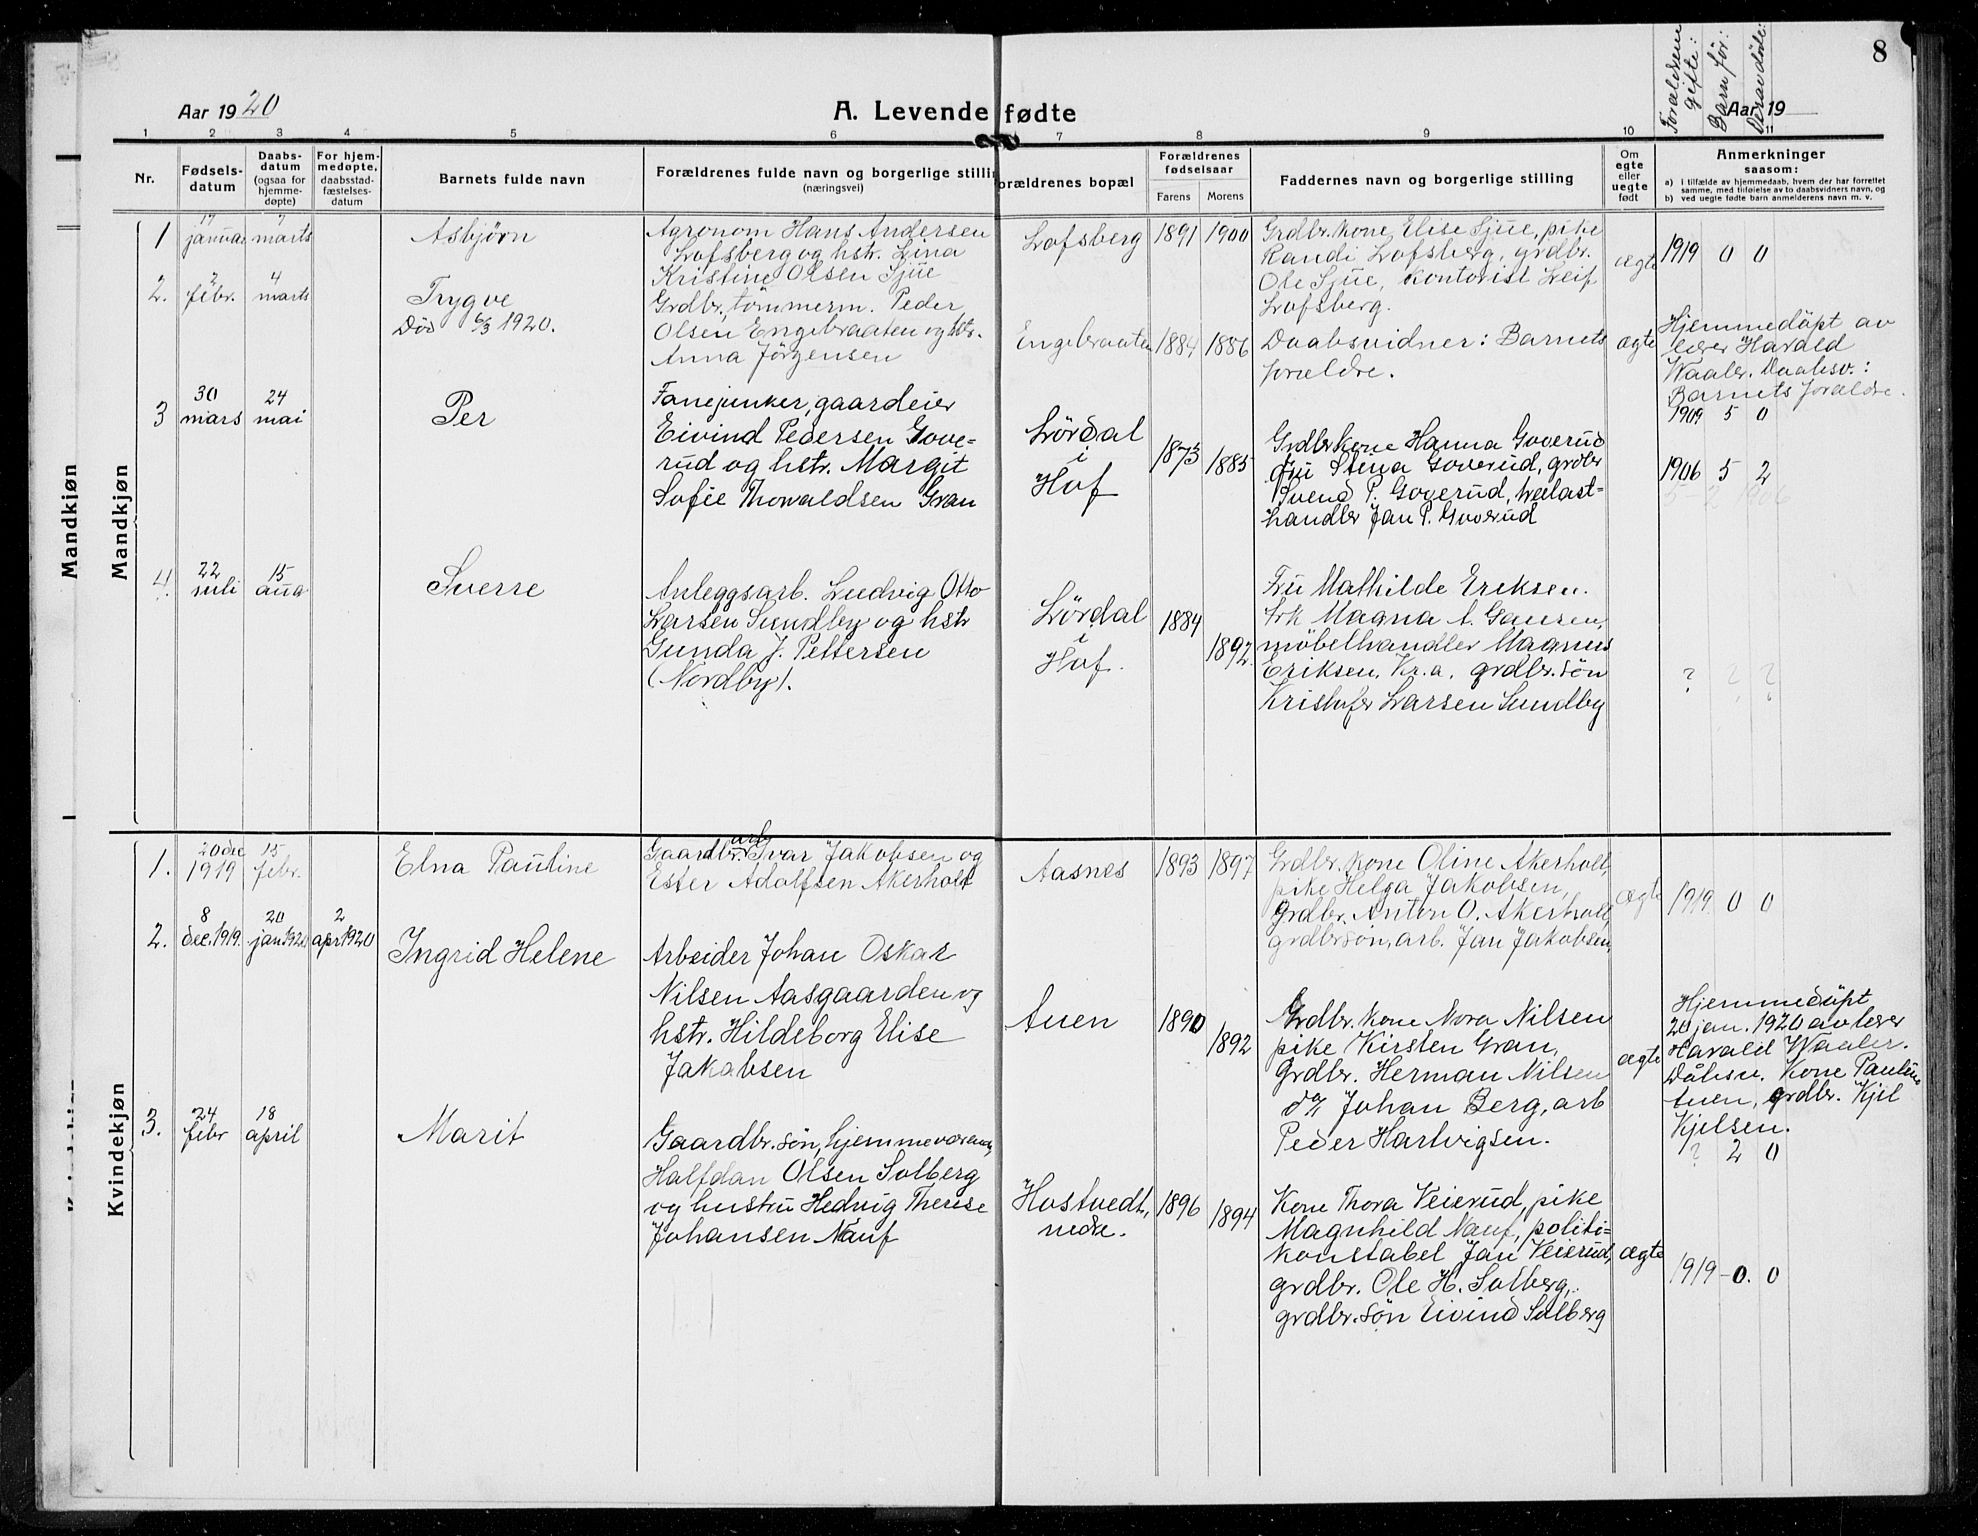 8
Forældrene gifte:
Barn før:
Derav døde:
Aar 1920
A. Levende fødte
Aar 19
1 2 3 4 5 6 7 8 9 10 11
Nr.
Fødsels-
datum
Daabs-
datum
(ogsaa for
hjemme-
døpte)
For hjem-
medøpte,
daabsstad-
fæstelses-
datum
Barnets fulde navn
Forældrenes fulde navn og borgerlige stillin
(næringsvei)
orældrenes bopæl
Forældrenes
fødselsaar
Farens Morens
Faddernes navn og borgerlige stilling
Om
egte
eller
uegte
født
Anmerkninger
saasom:
a) I tilfælde av hjemmedaab, hvem der har forrettet
samme, med tilføielse av to daabsvidners navn, og
b) ved uegte fødte barn anmelderens navn m. v.
Mandkjøn
Mandkjøn
1
17
januar
7
marts
Asbjørn
Agronom Hans Andersen
Lofsberg og hstr. Lina
Kristine Olsen Sjue
Lofsberg
1891 1900
Grdbr. kone Elise Sjue, pike
Randi Lofsberg, grdbr.
Ole Sjue, kontorist Leif
Lofsberg.
ægte
1919 0 0
2.
2
febr.
4
marts
Trygve
Død 6/3 1920.
Grdbr., tømmerm. Peder
Olsen Engebraaten og hstr.
Anna Jörgensen
Engebraaten
1884 1886
Daabsvidner: Barnets
forældre.
ægte
Hjemmedöpt av
lærer Harald
Waaler. Daabsv.:
Barnets forældre.
1909 5 0
3
30
mars
24
mai
Per
Fanejunker, gaardeier
Eivind Pedersen Gove-
rud og hstr. Margit
Sofie Thorvaldsen Gran
Lördal
i
Hof
1873 1885
Grdbr kone Hanna Goverud
fru Stina Goverud, grdbr
Svend P. Goverud, trelast-
handler Jan P. Goverud
1906 5 2
5 2 1906
4.
22
juli
15
aug
Sverre
Anleggsarb. Ludvig Otto
Larsen Sundby og hstr
Gunda J. Pettersen
(Nordby).
Lördal
i
Hof.
1884 1892.
Fru Mathilde Eriksen.
frk Magna A. Gausen,
möbelhandler Magnus
Eriksen, Kr.a. grdbr. sön
Kristofer Larsen Sundby
? ? ?
Kvindekjøn
1.
20 dec
1919
15
febr.
Elna Pauline
arb
Gaardbr. Ivar Jakobsen og
Ester Adolfsen Akerholt
Aasnes
1893 1897
Grdbr. kone Oline Akerholt,
pike Helga Jakobsen,
Grdbr. Anton O. Akerholt,
grdbr sön, arb. Jan Jakobsen,
ægte
1919 0 0
2.
8
dec. 1919.
20
jan 1920
2
apr 1920
Ingrid Helene
Arbeider Johan Oskar
Nilsen Aasgaarden og
hstr. Hildeborg Elise
Jakobsen
Auen
1890 1892
Grdbr. kone Nora Nilsen
pike Kirsten Gran,
Grdbr. Herman Nilsen
do/ Johan Berg, arb
Peder Hartvigsen.
ægte
Hjemmedöpt
20 jan. 1920 av lærer
Harald Waaler.
Dåbsv. Kone Pauline
Auen, grdbr. Kjel
Kjelsen.
? 2 0
3.
24
febr
18
april
Marit
Gaardbr. sön, hjemmeværende,
Halfdan Olsen Solberg
og hustru Hedvig Therese
Johansen Nauf
Hostvedt,
nedre.
1896 1894
Kone Thora Veierud, pike
Magnhild Nauf, politi-
konstabel Jan Veierud,
grdbr. Ole H. Solberg,
grdbr. sön Eivind Solberg
ægte
1919 - 0. 0